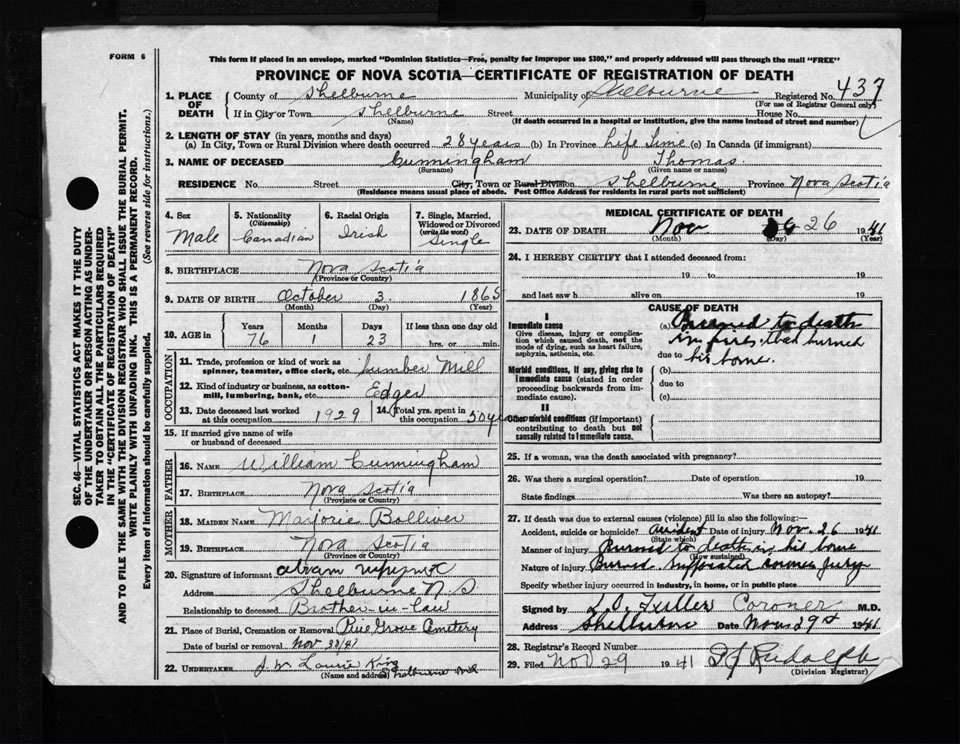 FORM 6
This form if placed in an envelope, marked "Dominion Statistics—Free, penalty for improper use $300," and properly addressed will pass through the mail "FREE"
PROVINCE OF NOVA SCOTIA—CERTIFICATE OF REGISTRATION OF DEATH
1. PLACE OF DEATH
County of Shelburne Municipality of Shelburne Registered No. 437
(For use of Registrar General only)
If in City or Town Shelburne Street House No.
(Name) (If death occurred in a hospital or institution, give the name instead of street and number)
2. LENGTH OF STAY (in years, months and days)
(a) In City, Town or Rural Division where death occurred 28 years (b) In Province Life Time (c) In Canada (if immigrant)
3. NAME OF DECEASED Cunningham Thomas
(Surname) (Given name or names)
RESIDENCE No. Street City, Town or Rural Division Shelburne Province Nova Scotia
(Residence means usual place of abode. Post Office Address for residents in rural parts not sufficient)
4. Sex Male
5. Nationality (Citizenship) Canadian
6. Racial Origin Irish
7. Single, Married, Widowed or Divorced (write the word) Single
8. BIRTHPLACE Nova Scotia
(Province or Country)
9. DATE OF BIRTH October 3 1865
(Month) (Day) (Year)
10. AGE in Years 76 Months 1 Days 23 If less than one day old hrs. or min.
OCCUPATION
11. Trade, profession or kind of work as spinner, teamster, office clerk, etc. Lumber Mill
12. Kind of industry or business, as cotton-mill, lumbering, bank, etc. Edger
13. Date deceased last worked at this occupation 1929
14. Total yrs. spent in this occupation 50 yrs
15. If married give name of wife or husband of deceased
FATHER
16. NAME William Cunningham
17. BIRTHPLACE Nova Scotia
(Province or Country)
MOTHER
18. MAIDEN NAME Marjorie Bolliver
19. BIRTHPLACE Nova Scotia
(Province or Country)
20. Signature of informant
Address Shelburne N.S
Relationship to deceased Brother-in-law
21. Place of Burial, Cremation or Removal Pine Grove Cemetery
Date of burial or removal Nov 28/41
22. UNDERTAKER J. W. Laurie King
(Name and address) Shelburne
MEDICAL CERTIFICATE OF DEATH
23. DATE OF DEATH Nov 26 1941
(Month) (Day) (Year)
24. I HEREBY CERTIFY that I attended deceased from:
19 to 19
and last saw h alive on 19
CAUSE OF DEATH
I
Immediate cause
Give disease, injury or complication which caused death, not the mode of dying, such as heart failure, asphyxia, asthenia, etc.
(a) Burned to death
in fire that burned
due to his home.
Morbid conditions, if any, giving rise to immediate cause (stated in order proceeding backwards from immediate cause).
(b)
due to
(c)
II
Other morbid conditions (if important) contributing to death but not causally related to immediate cause.
25. If a woman, was the death associated with pregnancy?
26. Was there a surgical operation? Date of operation 19
State findings Was there an autopsy?
27. If death was due to external causes (violence) fill in also the following:—
Accident, suicide or homicide? accident Date of injury Nov. 26 1941
(State which)
Manner of injury Burned to death in his home
(How sustained)
Nature of injury Burned suffocated coroners jury
Specify whether injury occurred in industry, in home, or in public place
Signed by Fuller Coroner M.D.
Address Shelburne Date Nov 29 1941
28. Registrar's Record Number
29. Filed Nov 29 1941 Rudolph
(Division Registrar)
SEC. 46—VITAL STATISTICS ACT MAKES IT THE DUTY OF THE UNDERTAKER OR PERSON ACTING AS UNDERTAKER TO OBTAIN ALL THE PARTICULARS REQUIRED IN THE "CERTIFICATE OF REGISTRATION OF DEATH" AND TO FILE THE SAME WITH THE DIVISION REGISTRAR WHO SHALL ISSUE THE BURIAL PERMIT.
WRITE PLAINLY WITH UNFADING INK. THIS IS A PERMANENT RECORD.
Every item of information should be carefully supplied. (See reverse side for instructions.)